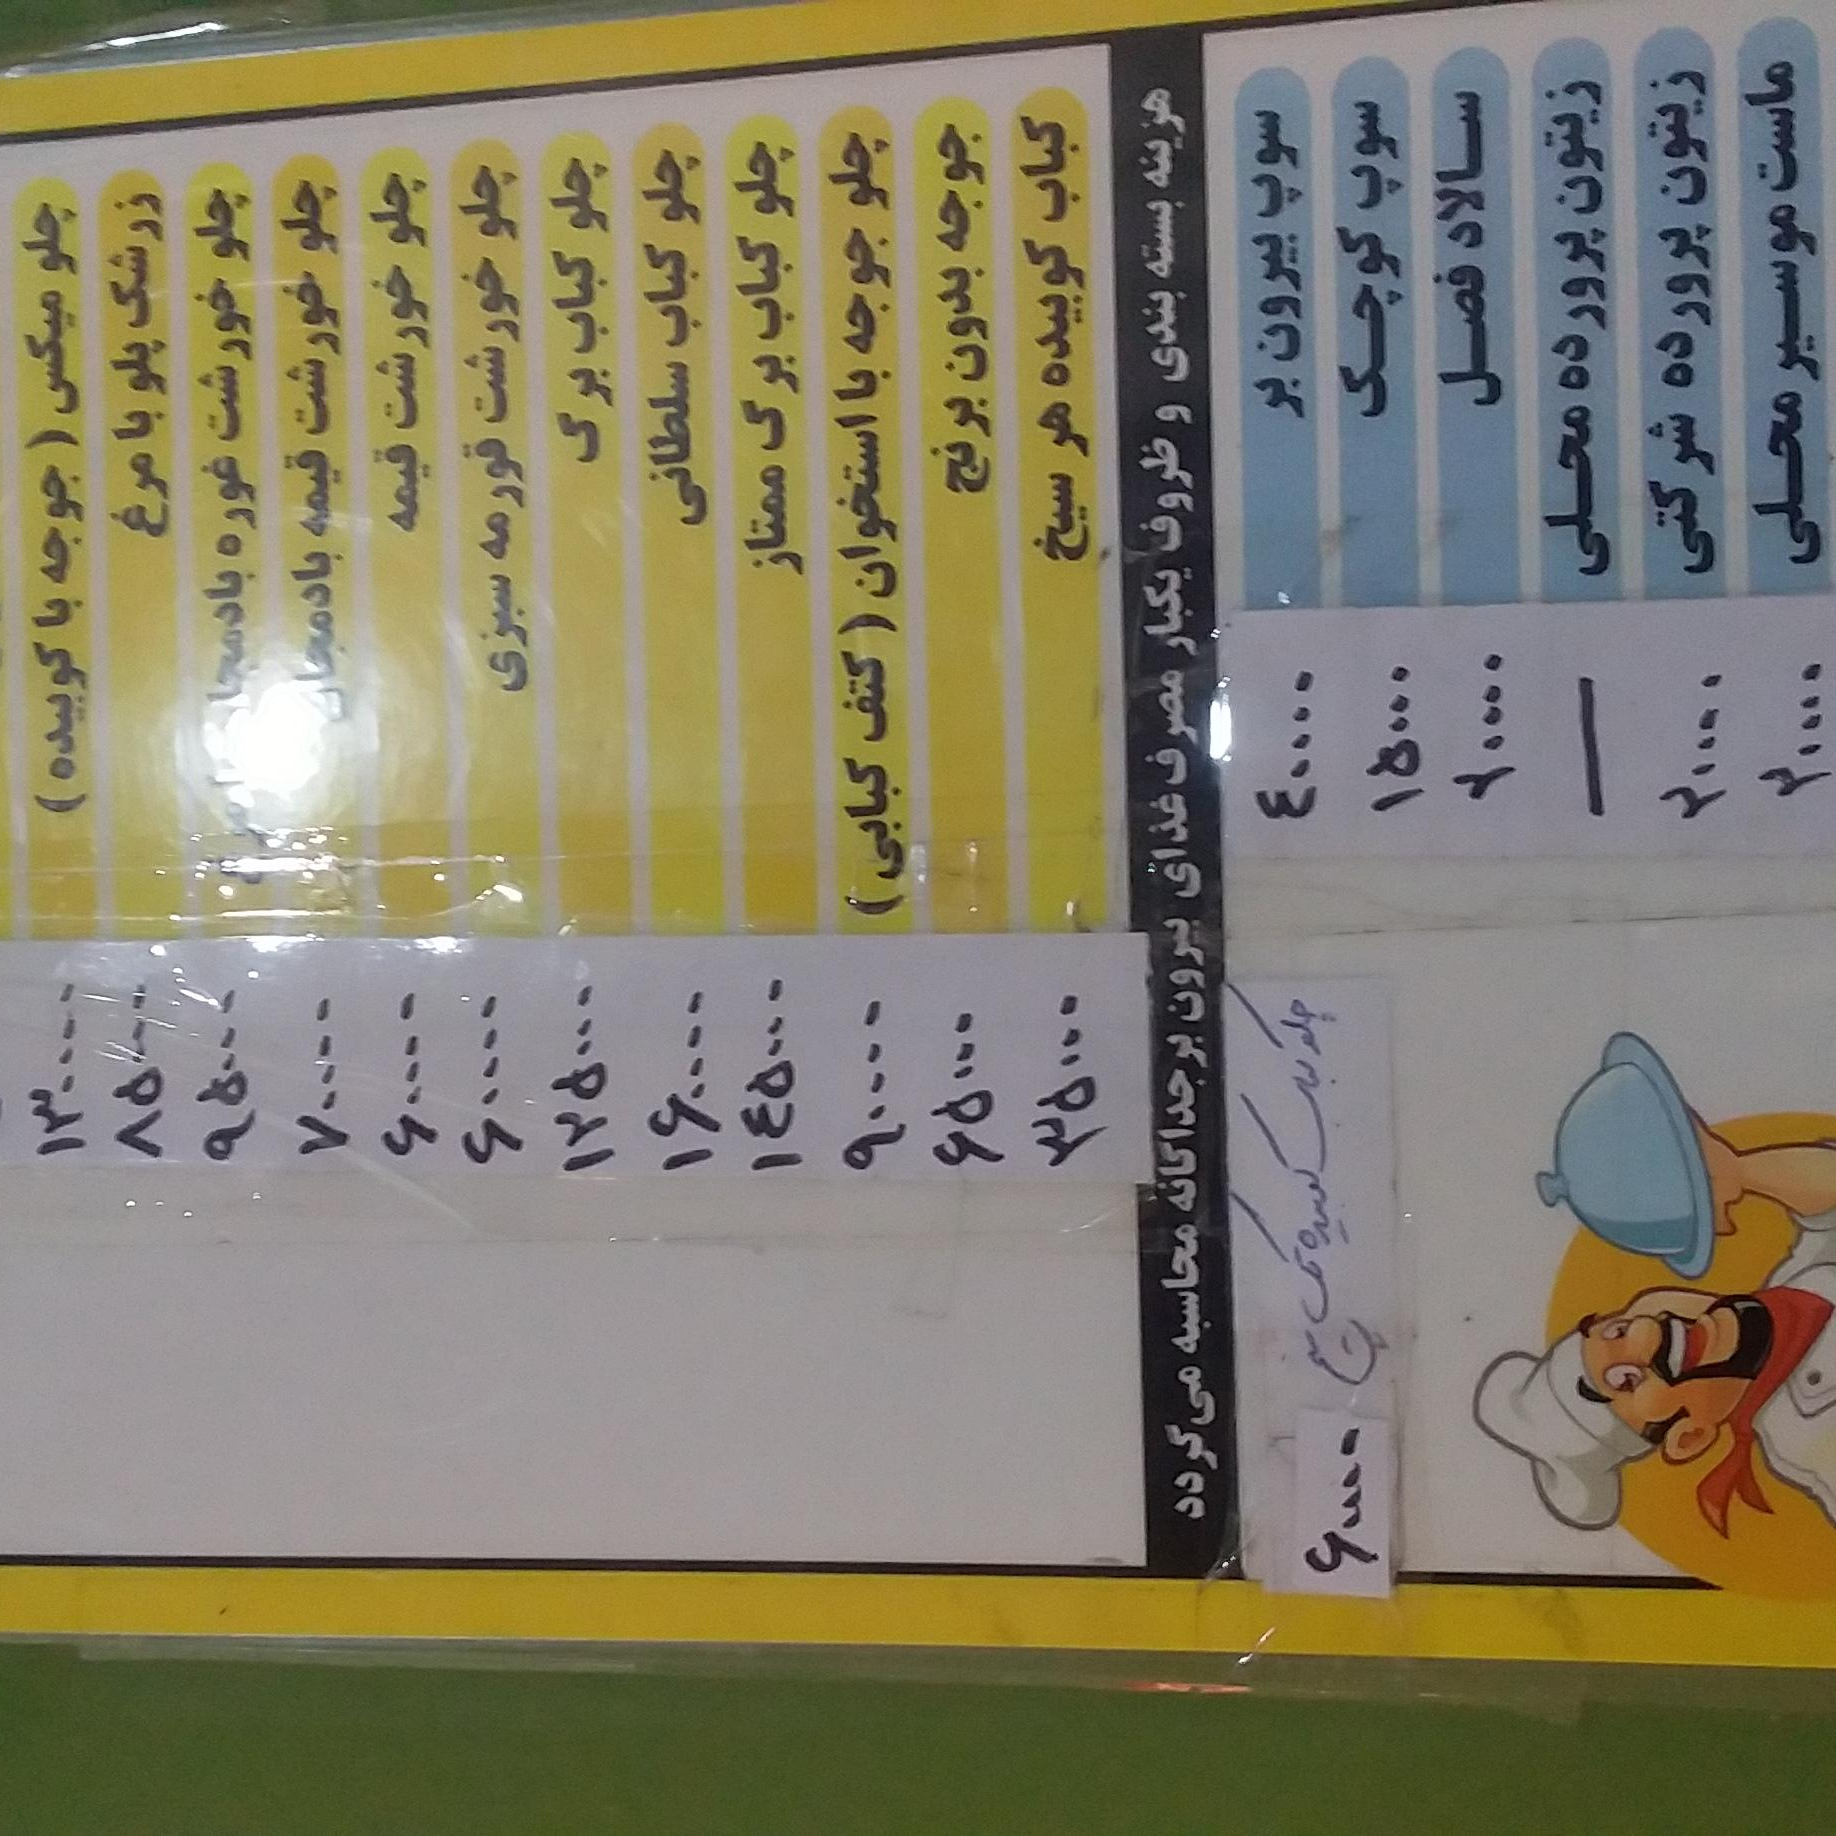 چلو میکس ( جوجه با کوبیده ) ۱۳۰۰۰۰
زرشک پلو با مرغ ۸۵۰۰۰
چلو خورشت غوره بادمجان ۹۵۰۰۰
چلو خورشت قیمه بادمجان ۷۰۰۰۰
چلو خورشت قیمه ۶۰۰۰۰
چلو خورشت قورمه سبزی ۶۰۰۰۰
چلو کباب برگ ۱۲۵۰۰۰
چلو کباب سلطانی ۱۶۰۰۰۰
چلو کباب برگ ممتاز ۱۴۵۰۰۰
چلو جوجه با استخوان ( کتف کبابی ) ۹۰۰۰۰
جوجه بدون برنج ۶۵۰۰۰
کباب کوبیده هر سیخ ۳۵۰۰۰
هزینه بسته بندی و ظروف یکبار مصرف غذای بیرون بر جداگانه محاسبه می گردد
سوپ بیرون بر ۴۰۰۰۰
سوپ کوچک ۱۵۰۰۰
سالاد فصل ۲۰۰۰۰
زیتون پرورده محلی —
زیتون پرورده شرکتی ۲۰۰۰۰
ماست موسیر محلی ۲۰۰۰۰
چلو کباب کوبیده تک سیخ
۶۰۰۰۰